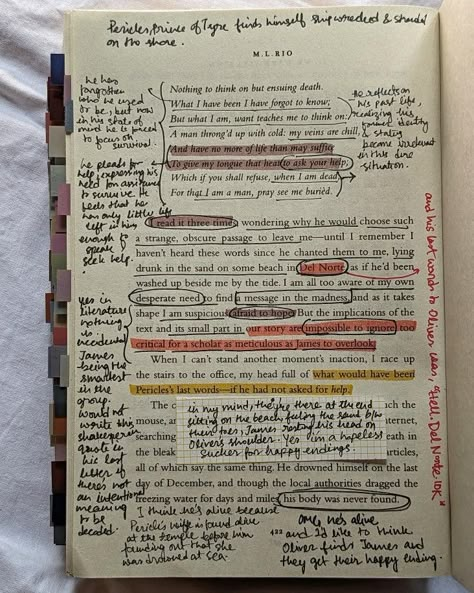 Pericles, Prince of Tyre finds himself shipwrecked & stranded
on the shore.
M. L. RIO
he has
forgotten
who he used
to be, but now
in his state of
mind he is forced
to focus on
survival.
he pleads for
help, expressing his
need for assistance
to survive. He
feels that he
has only little life
left in him
enough to
speak &
seek help.
Nothing to think on but ensuing death.
What I have been I have forgot to know;
But what I am, want teaches me to think on:
A man throng'd up with cold: my veins are chill,
And have no more of life than may suffice
To give my tongue that heat to ask your help;
Which if you shall refuse, when I am dead,
For that I am a man, pray see me buried.
He reflects on
his past life,
realizing his
former identity
& status
become irrelevant
in this dire
situation.
I read it three times, wondering why he would choose such
a strange, obscure passage to leave me—until I remember I
haven't heard these words since he chanted them to me, lying
drunk in the sand on some beach in Del Norte as if he'd been
washed up beside me by the tide. I am all too aware of my own
desperate need to find a message in the madness, and as it takes
shape I am suspicious, afraid to hope. But the implications of the
text and its small part in our story are impossible to ignore, too
critical for a scholar as meticulous as James to overlook.
When I can't stand another moment's inaction, I race up
the stairs to the office, my head full of what would have been
Pericles's last words—if he had not asked for help.
and his last words to Oliver was, "Hell. Del Norte. 10K"
yes in
literature
nothing
is
incidental
James
being the
smartest
in the
group.
Would not
write this
shakespeare
quote in
his last
letter if
there's not
an intentional
meaning
to be
decoded.
The c
ich the
mouse, an
internet,
searching
eath in
the bleak
articles,
in my mind, they're there at the end
sitting on the beach feeling the sand b/w
their toes, James resting his head on
Oliver's shoulder. Yes I'm a hopeless
sucker for happy endings
all of which say the same thing. He drowned himself on the last
day of December, and though the local authorities dragged the
freezing water for days and miles, his body was never found.
I think he's alive because
Pericles's wife is found alive
at the temple before him
founding out that she
was drowned at sea.
omg he's alive
and I'd like to think
Oliver finds James and
they get their happy ending.